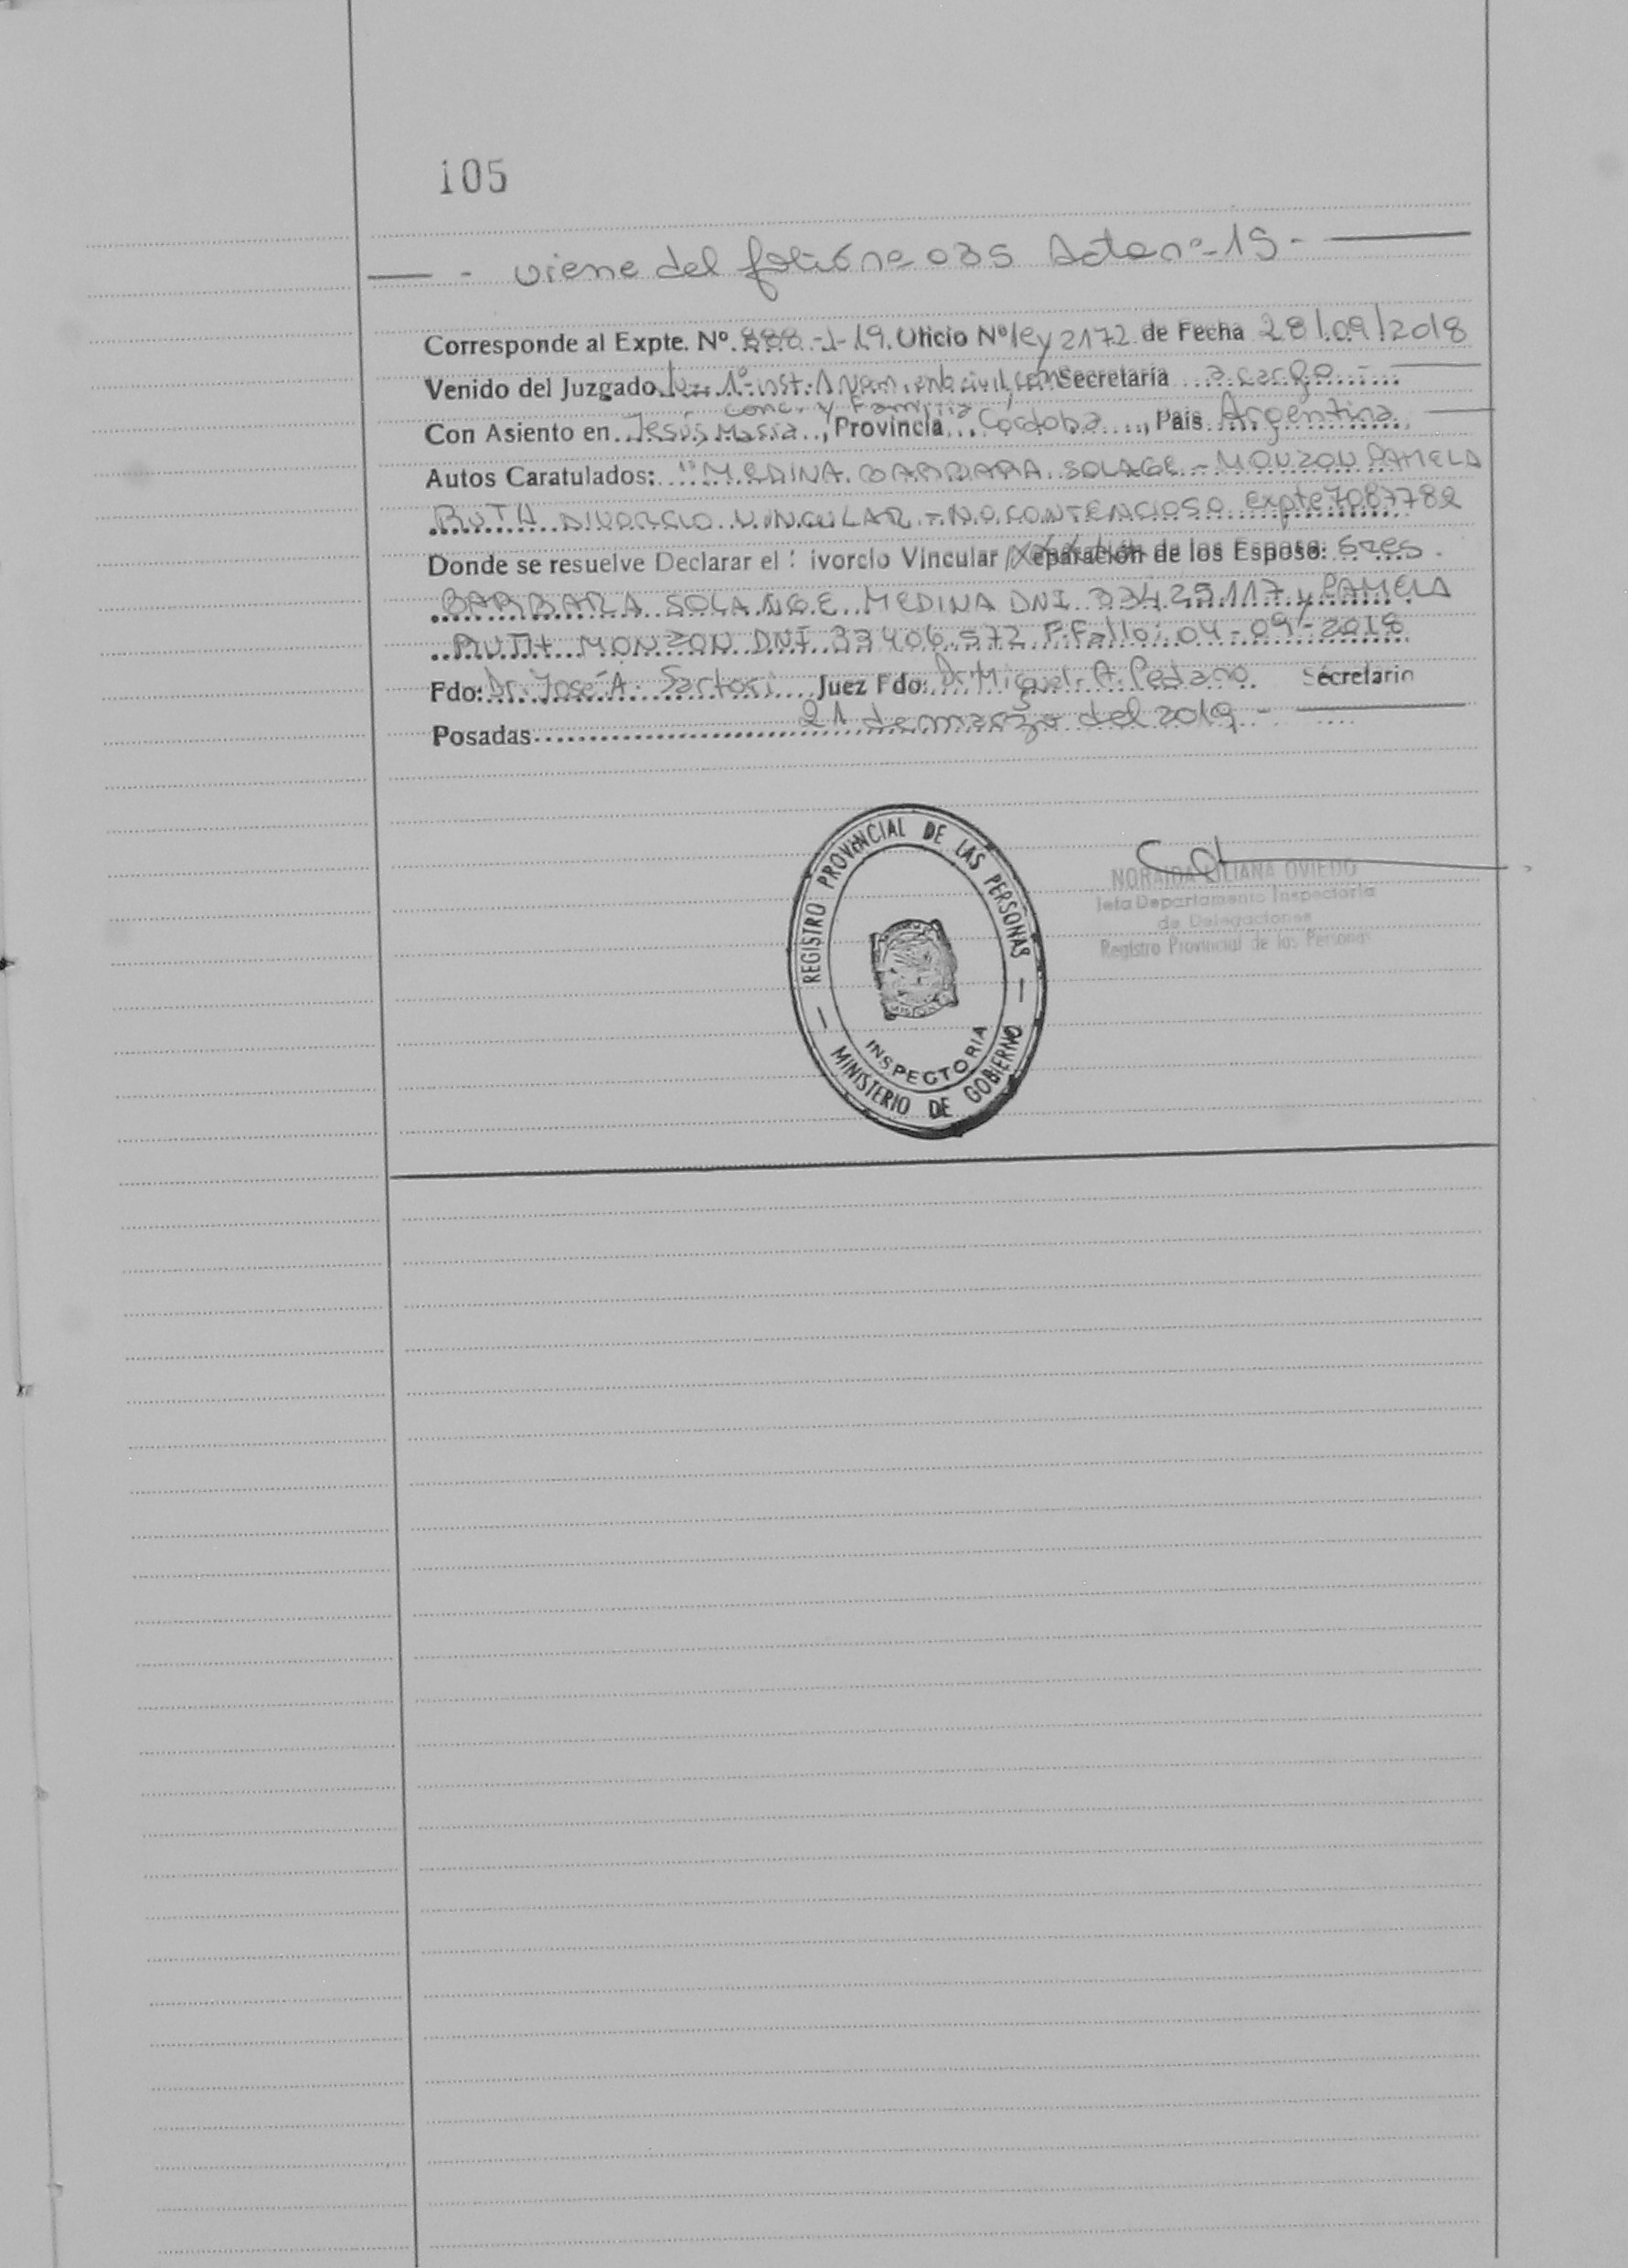 105
- viene del folio nº 035 Acta nº 15 -
Corresponde al Expte. Nº 888-J-19. Oficio Nº ley 2172 de Fecha 28/09/2018
Venido del Juzgado Juz. 1º inst. 1 Nom. en lo civil, com Secretaría a cargo -
conc. y Familia
Con Asiento en Jesús María, Provincia Córdoba, País Argentina
Autos Caratulados: "MEDINA BARBARA SOLAGE - MONZON PAMELA
RUTH DIVORCIO VINCULAR - NO CONTENCIOSO expte 7087782
Donde se resuelve Declarar el : ivorcio Vincular / eparación de los Esposo: Sres.
BARBARA SOLANGE MEDINA DNI 33429.117 y PAMELA
RUTH MONZON DNI 33406.572 F. Fallo: 04-09-2018
Fdo: Dr. José A. Sartori Juez Fdo: Dr Miguel A. Pedano Secretario
Posadas 21 de marzo del 2019 -
REGISTRO PROVINCIAL DE LAS PERSONAS
INSPECTORIA
MINISTERIO DE GOBIERNO
NORAIDA LILIANA OVIEDO
Jefa Departamento Inspectoría
de Delegaciones
Registro Provincial de las Personas